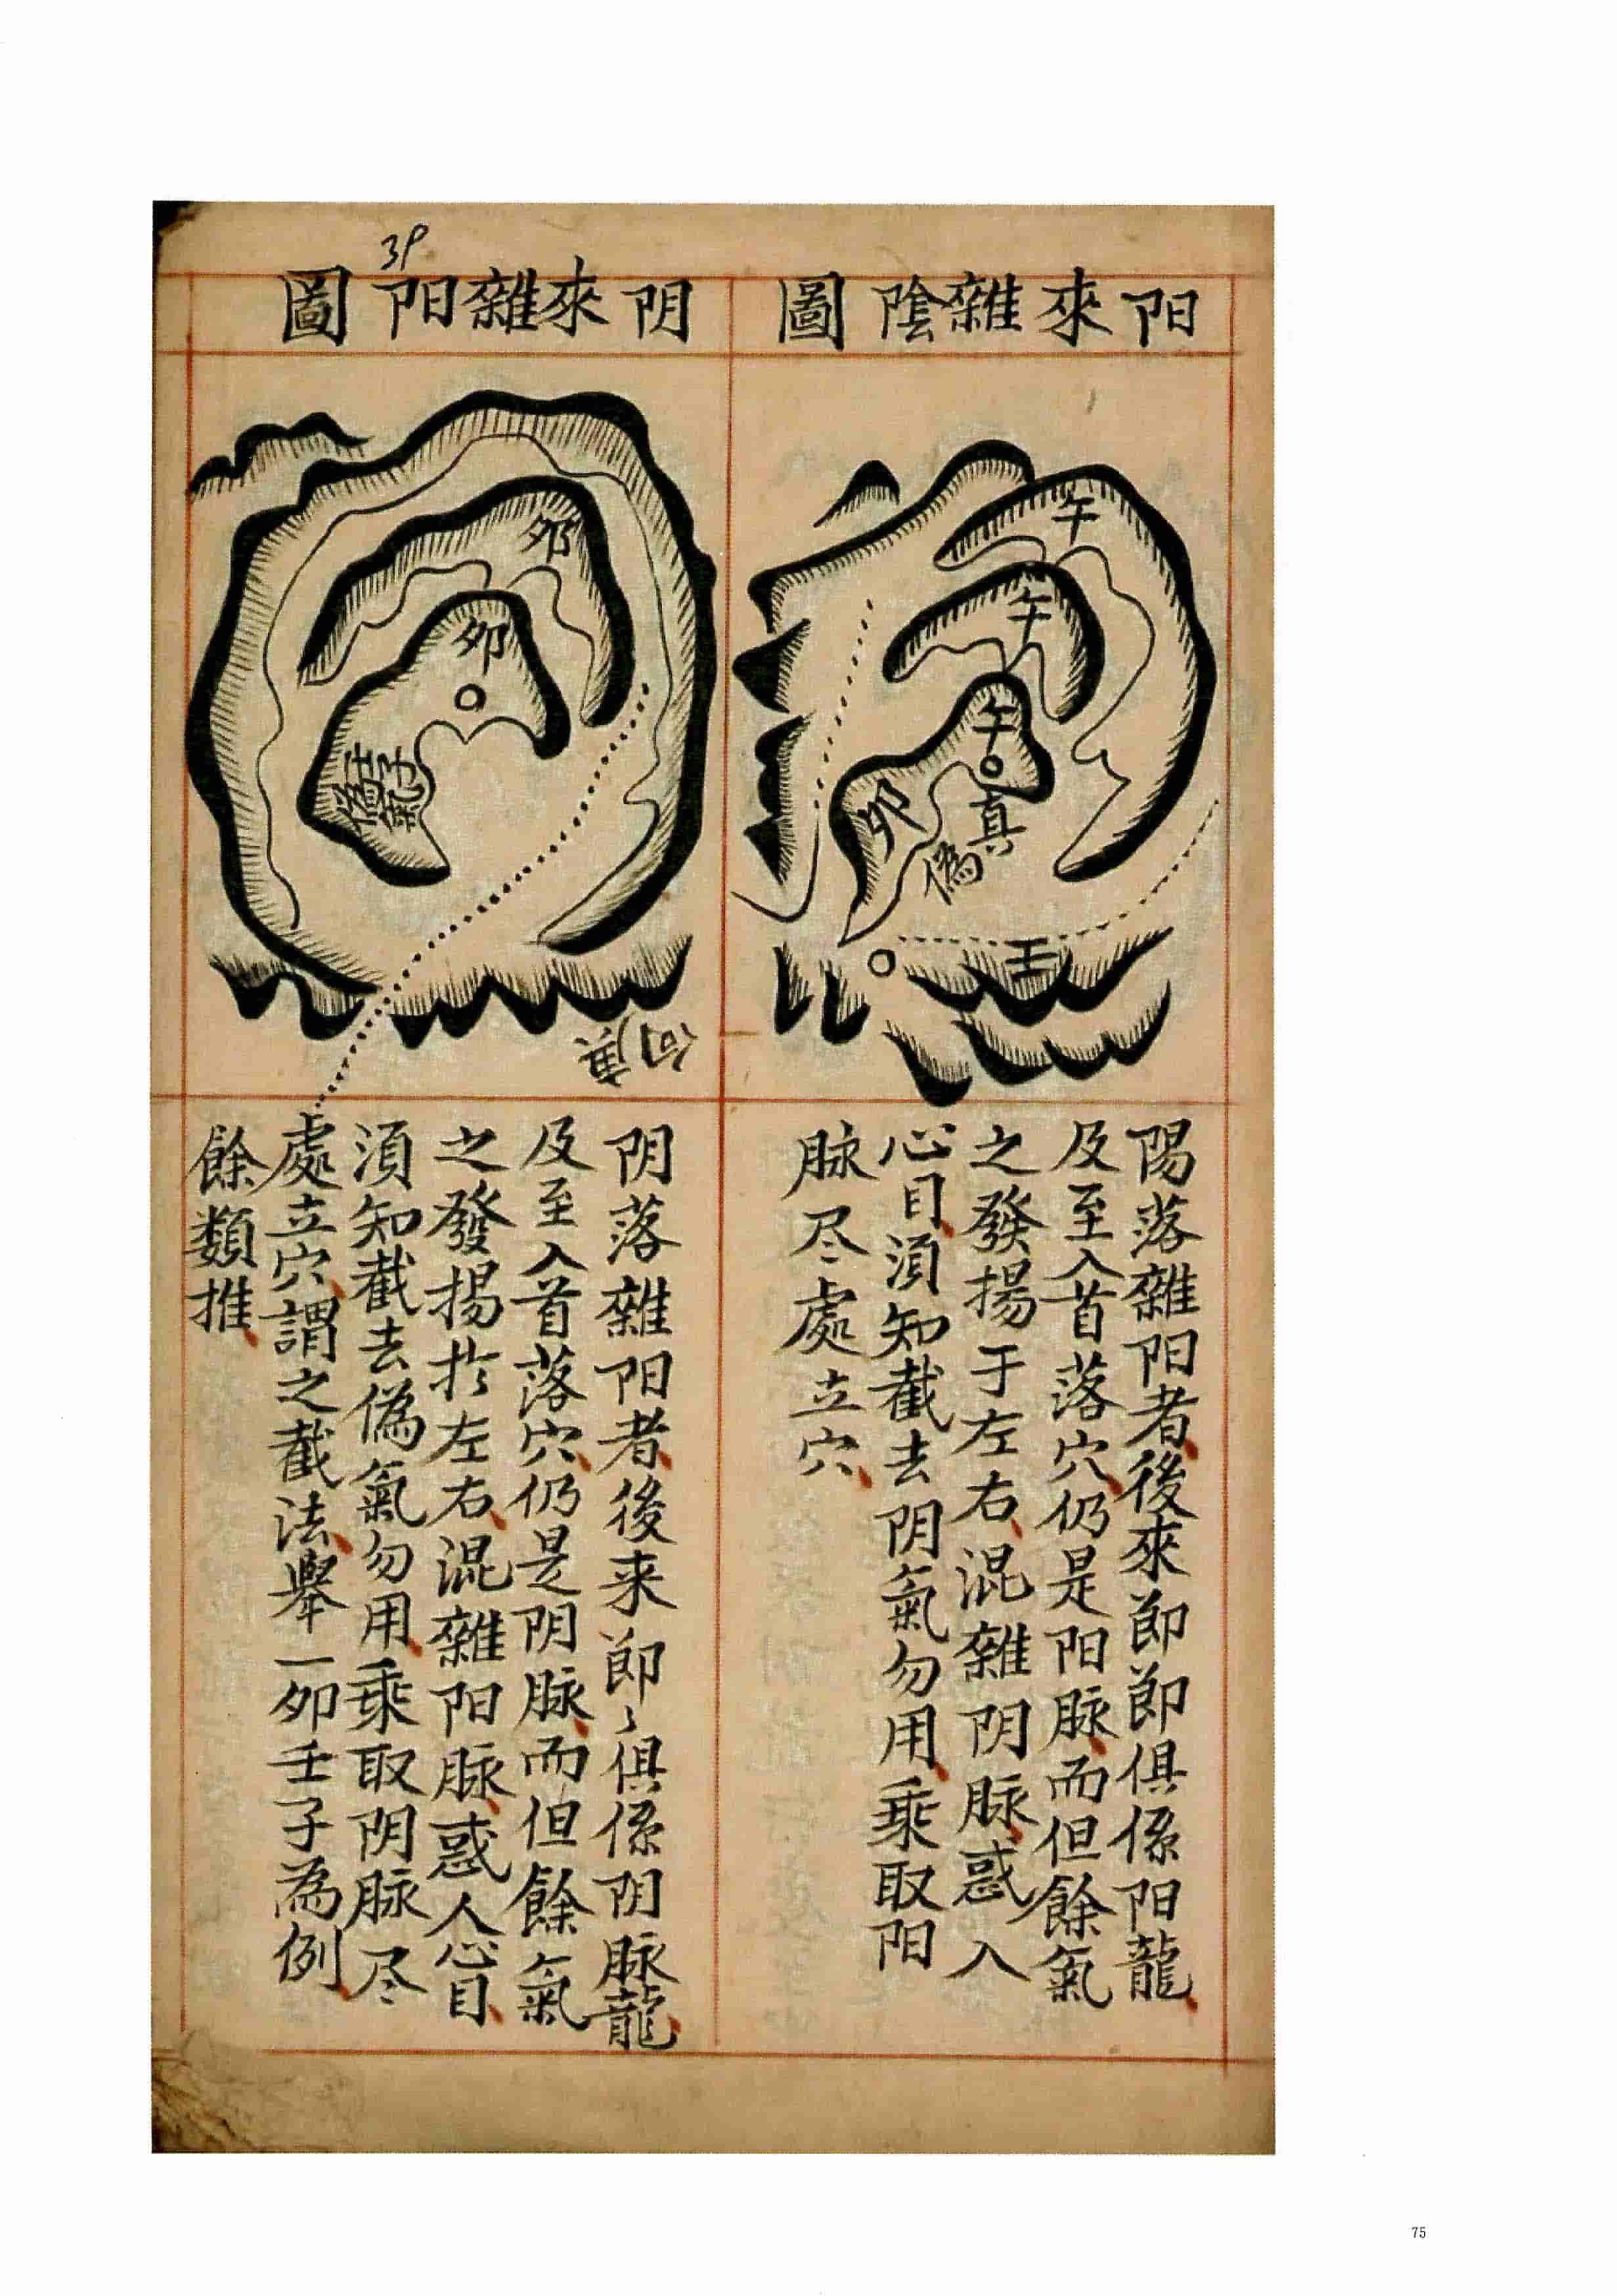 阳來雜陰圖
午
午
午
真
卯
偽
壬
陽落雜阳者後來節節俱係阳龍
及至入首落穴仍是阳脉而但餘氣
之發揚于左右混雜阴脉惑入
心目湏知截去阴氣勿用乘取阳
脉尽處立穴
39
阴來雜阳圖
夘
夘
阴落雜阳者後来節〻俱係阴脉龍
及至入首落穴仍是阴脉而但餘氣
之發揚扵左右混雜阳脉惑人心目
湏知截去偽氣勿用乘取阴脉尽
處立穴謂之截法舉一夘壬子為例
餘類推
75